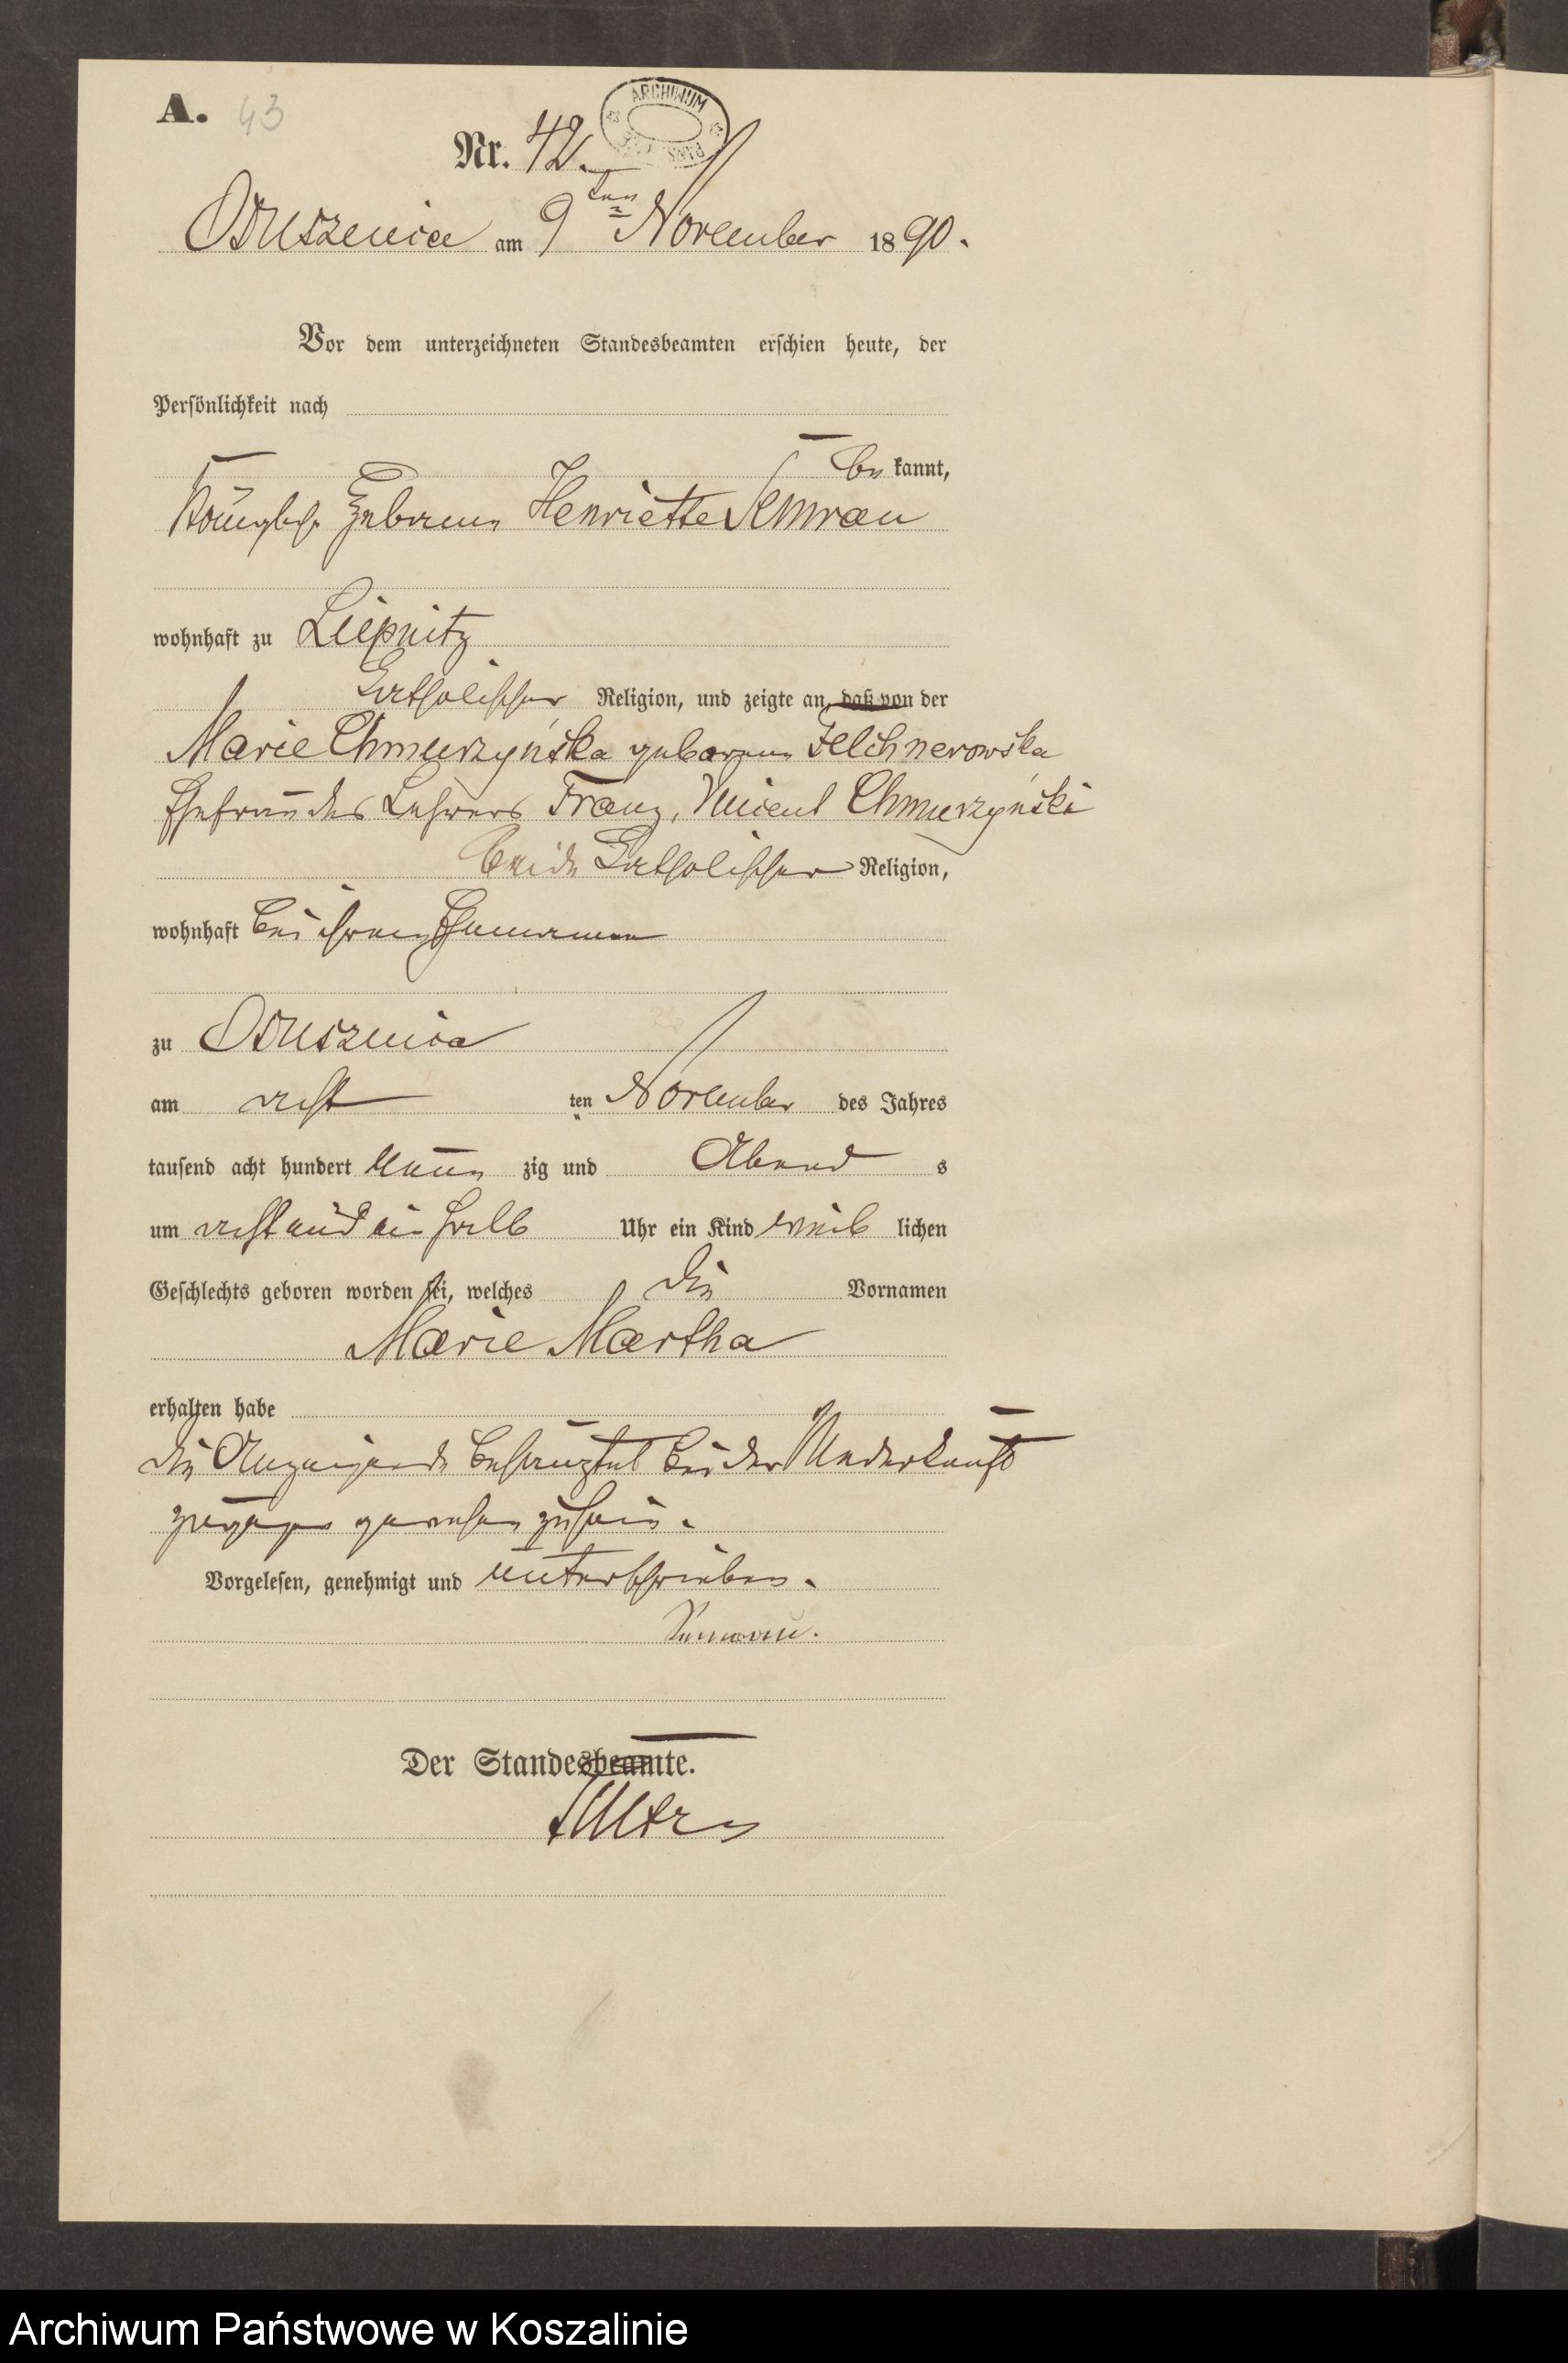 A. 43
ARCHIWUM
Nr. 42.
Ossuszenica am 9ten November 1890.
Vor dem unterzeichneten Standesbeamten erschien heute, der
Persönlichkeit nach
be kannt,
Königliche Hebamme Henriette Semrau
wohnhaft zu Liepnitz
katholischer Religion, und zeigte an, daß von der
Marie Chmurzyńska geborene Felchnerowska
Ehefrau des Lehrers Franz, Vincent Chmurzyński
beide katholischer Religion,
wohnhaft bei ihrem Ehemanne
zu Ossuszenica
am acht ten November des Jahres
tausend acht hundert neun zig und Abend s
um acht und ein halb Uhr ein Kind weib lichen
Geschlechts geboren worden sei, welches die Vornamen
Marie Martha
erhalten habe
die Anzeigende behauptet bei der Niederkunft
zugegen gewesen zu sein.
Vorgelesen, genehmigt und unterschrieben.
Semrau.
Der Standesbeamte.
Archiwum Państwowe w Koszalinie